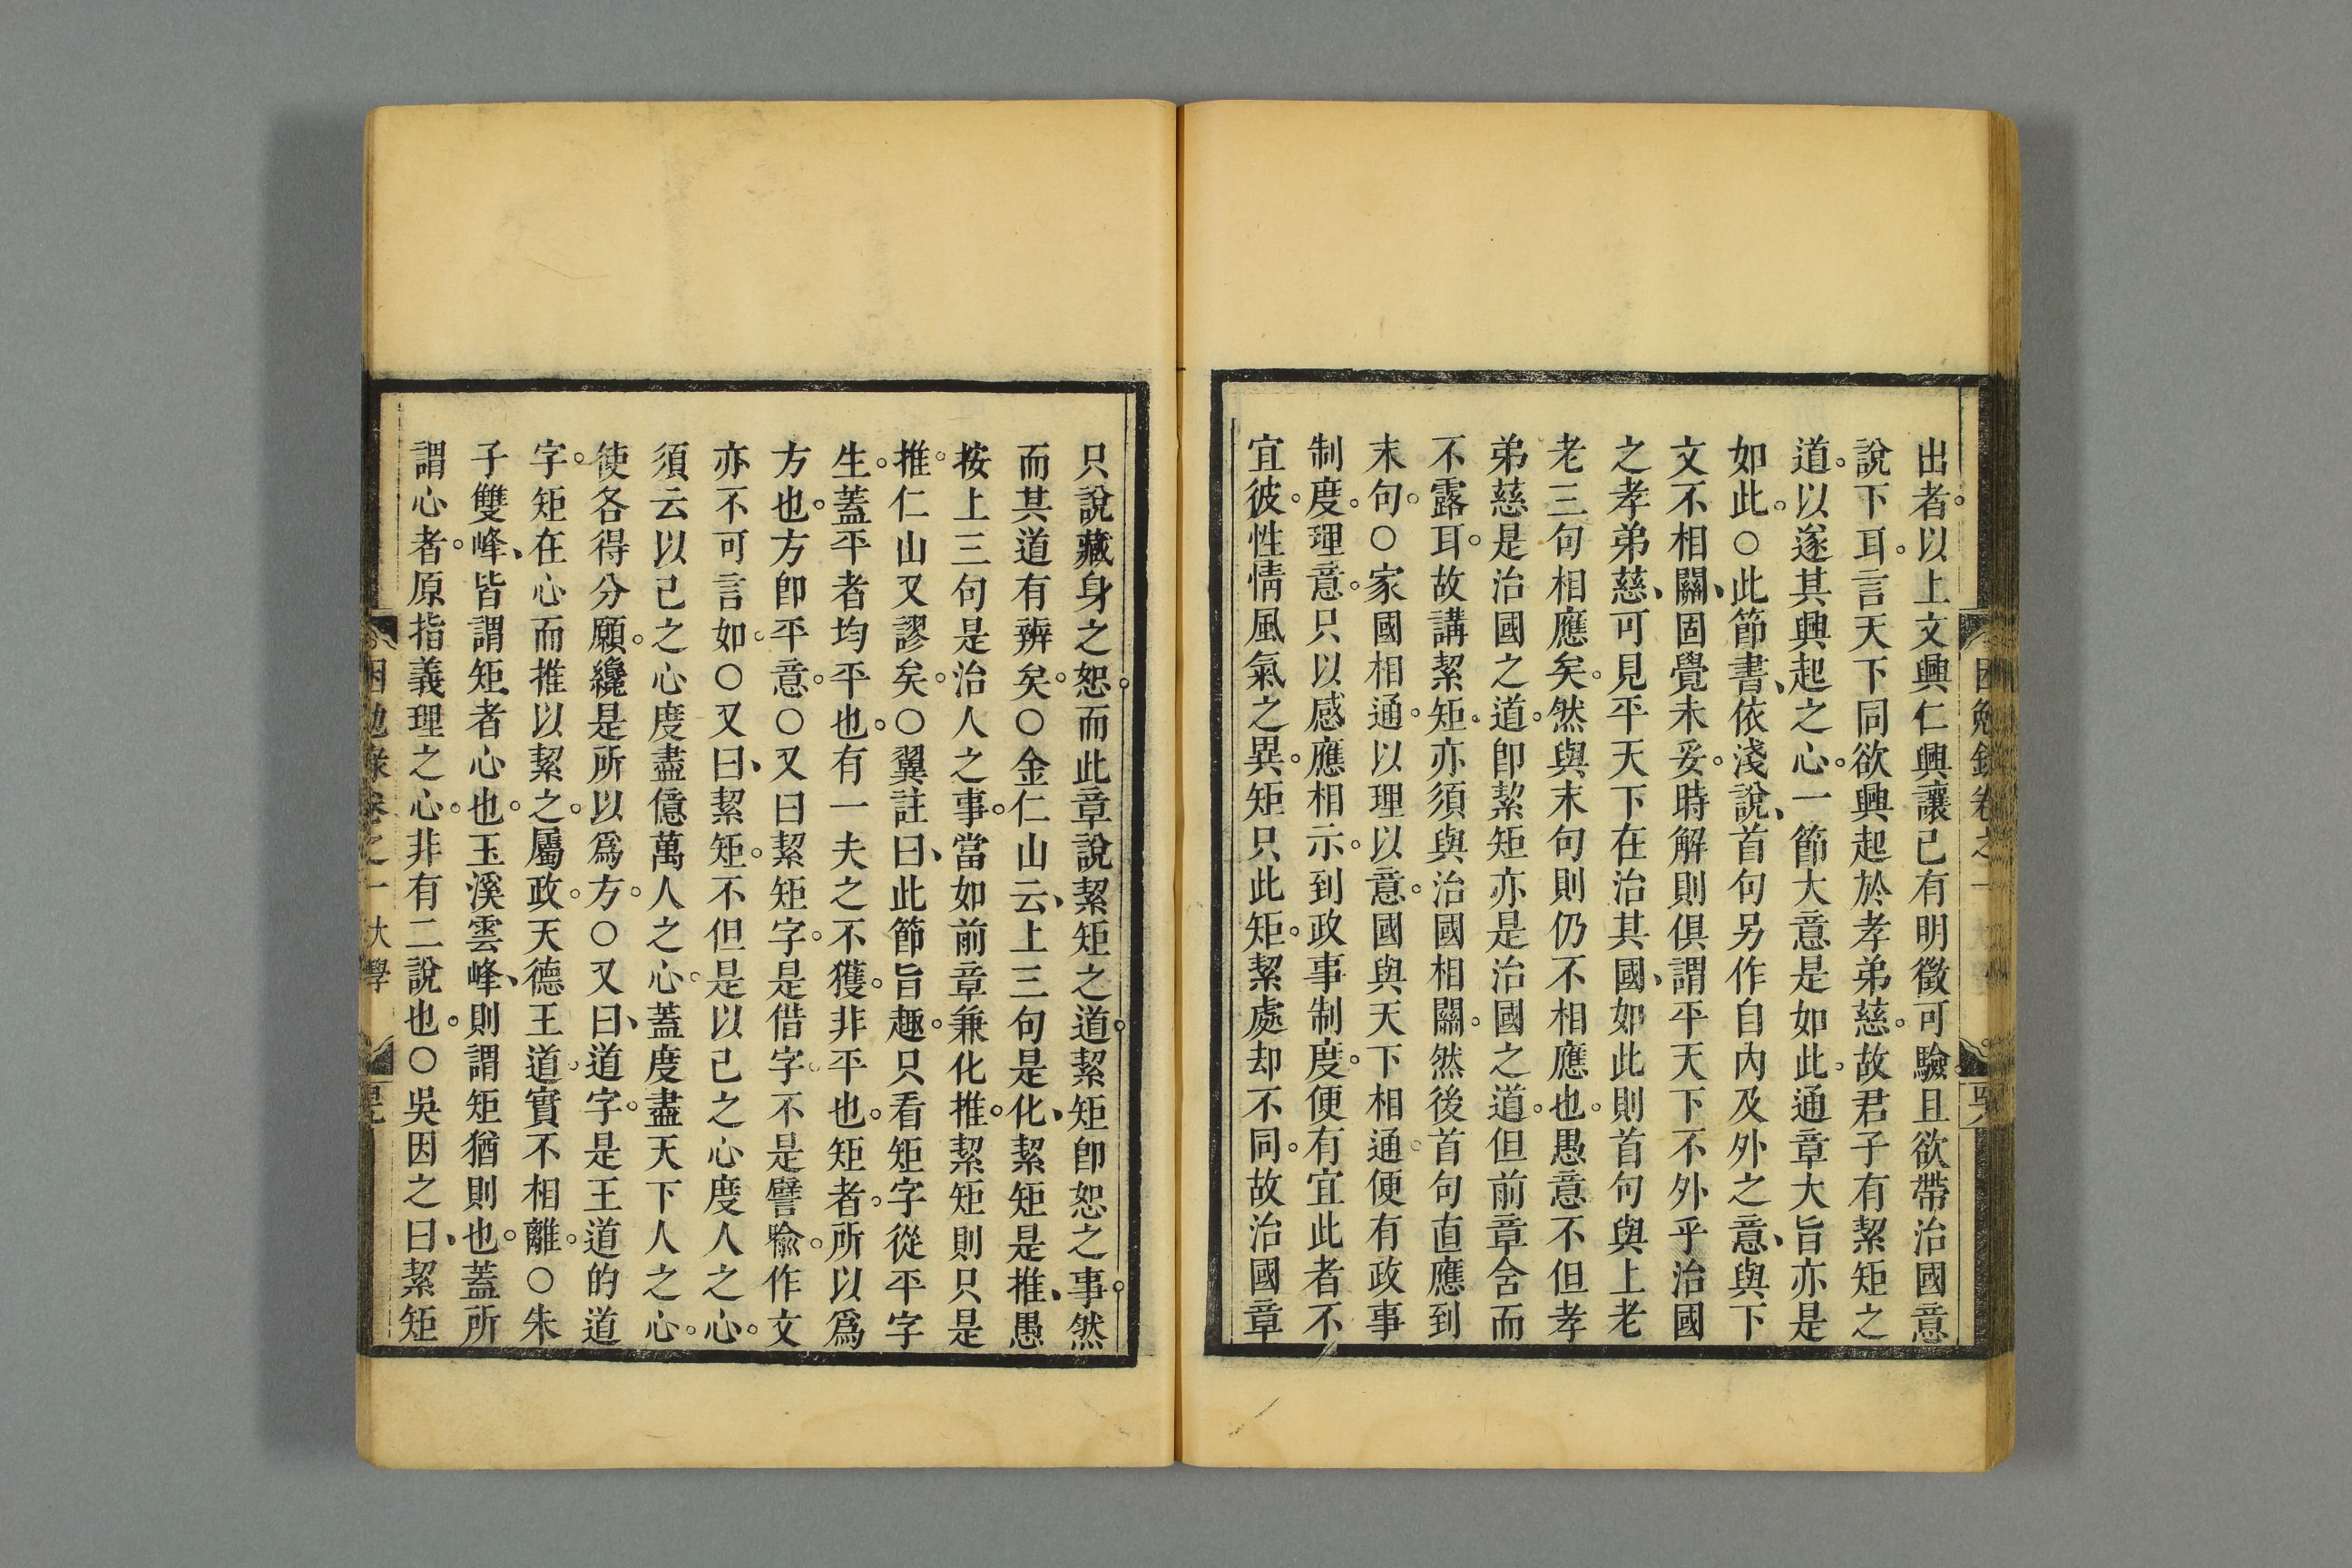 出者以上文興仁興讓已有明徵可驗且欲帶治國意
說下耳言天下同欲興起於孝弟慈故君子有絜矩之
道以遂其興起之心一節大意是如此通章大旨亦是
如此○此節書依淺說首句另作自內及外之意與下
文不相關固覺未妥時解則俱謂平天下不外乎治國
之孝弟慈可見平天下在治其國如此則首句與上老
老三句相應矣然與末句則仍不相應也愚意不但孝
弟慈是治國之道卽絜矩亦是治國之道但前章含而
不露耳故講絜矩亦須與治國相關然後首句直應到
末句○家國相通以理以意國與天下相通便有政事
制度理意只以感應相示到政事制度便有宜此者不
宜彼性情風氣之異矩只此矩絜處却不同故治國章
只說藏身之恕而此章說絜矩之道絜矩卽恕之事然
而其道有辨矣○金仁山云上三句是化絜矩是推愚
按上三句是治人之事當如前章兼化推絜矩則只是
推仁山又謬矣○翼註曰此節旨趣只看矩字從平字
生蓋平者均平也有一夫之不獲非平也矩者所以爲
方也方卽平意○又曰絜矩字是借字不是譬喩作文
亦不可言如○又曰絜矩不但是以己之心度人之心
須云以己之心度盡億萬人之心蓋度盡天下人之心
使各得分願纔是所以爲方○又曰道字是王道的道
字矩在心而推以絜之屬政天德王道實不相離○朱
子雙峰皆謂矩者心也玉溪雲峰則謂矩猶則也蓋所
謂心者原指義理之心非有二說也○吳因之曰絜矩
困勉錄卷之一 大學